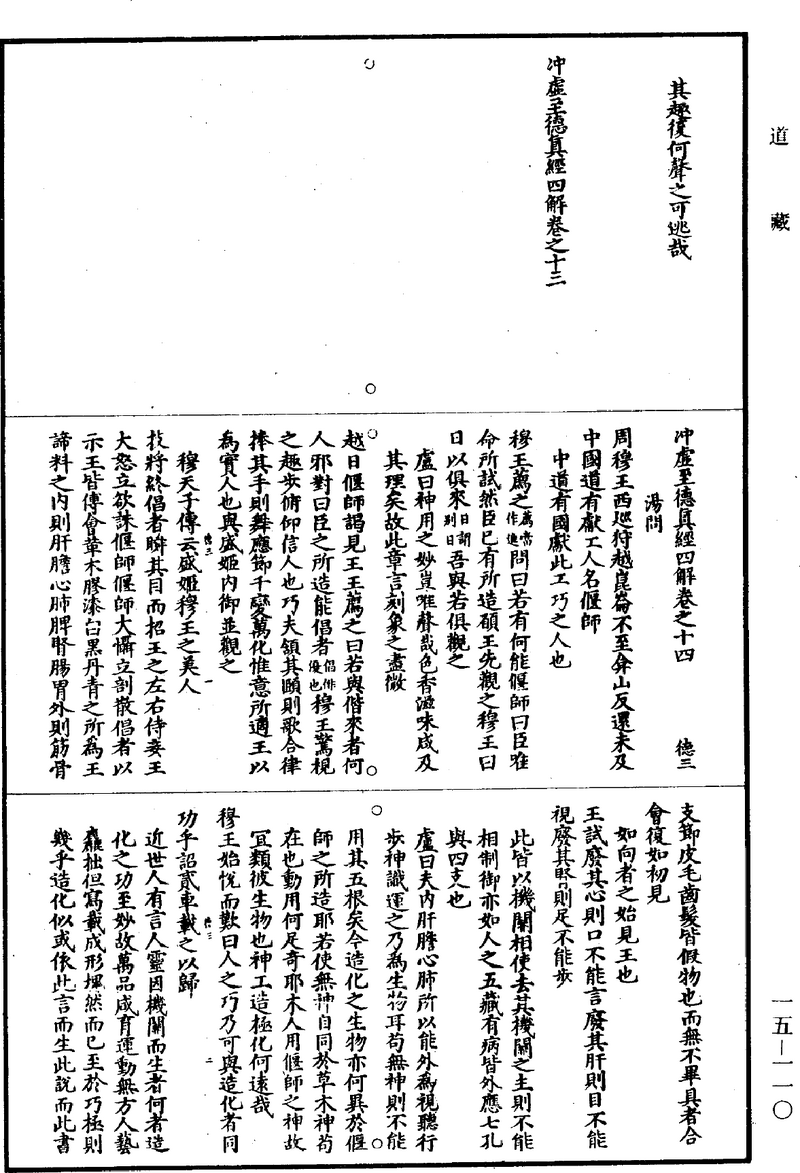 道藏
其趣復何聲之可逃哉
冲虛至德真經四解卷之十三
冲虛至德真經四解卷之十四 德三
湯問
周穆王西巡狩越崑崙不至弇山反還未及
中國道有獻工人名偃師
中道有國獻此工巧之人也
穆王薦之薦當作進問曰若有何能偃師曰臣唯
命所試然臣已有所造願王先觀之穆王曰
日以俱來日謂別日吾與若俱觀之
盧曰神用之妙豈唯聲哉色香滋味咸及
其理矣故此章言刻象之盡微
越日偃師謁見王王薦之曰若與偕來者何
人邪對曰臣之所造能倡者倡俳優也穆王驚視
之趣步俯仰信人也巧夫頷其頤則歌合律
捧其手則舞應節千變萬化惟意所適王以
為實人也與盛姬內御並觀之
穆天子傳云盛姬穆王之美人
技將終倡者瞬其目而招王之左右侍妾王
大怒立欲誅偃師偃師大懾立剖散倡者以
示王皆傅會革木膠漆白黑丹青之所為王
諦料之內則肝膽心肺脾腎腸胃外則筋骨
支節皮毛齒髮皆假物也而無不畢具者合
會復如初見
如向者之始見王也
王試廢其心則口不能言廢其肝則目不能
視廢其腎則足不能步
此皆以機關相使去其機關之主則不能
相制御亦如人之五藏有病皆外應七孔
與四支也
盧曰夫內肝膽心肺所以能外為視聽行
步神識運之乃為生物耳苟無神則不能
用其五根矣今造化之生物亦何異於偃
師之所造耶若使無神自同於草木神苟
在也動用何足奇耶木人用偃師之神故
宜類彼生物也神工造極化何遠哉
穆王始悅而歎曰人之巧乃可與造化者同
功乎詔貳車載之以歸
近世人有言人靈因機關而生者何者造
化之功至妙故萬品咸育運動無方人藝
麤拙但寫載成形塊然而已至於巧極則
幾乎造化似或依此言而生此說而此書
德三 一
德三 二
一五—一一〇